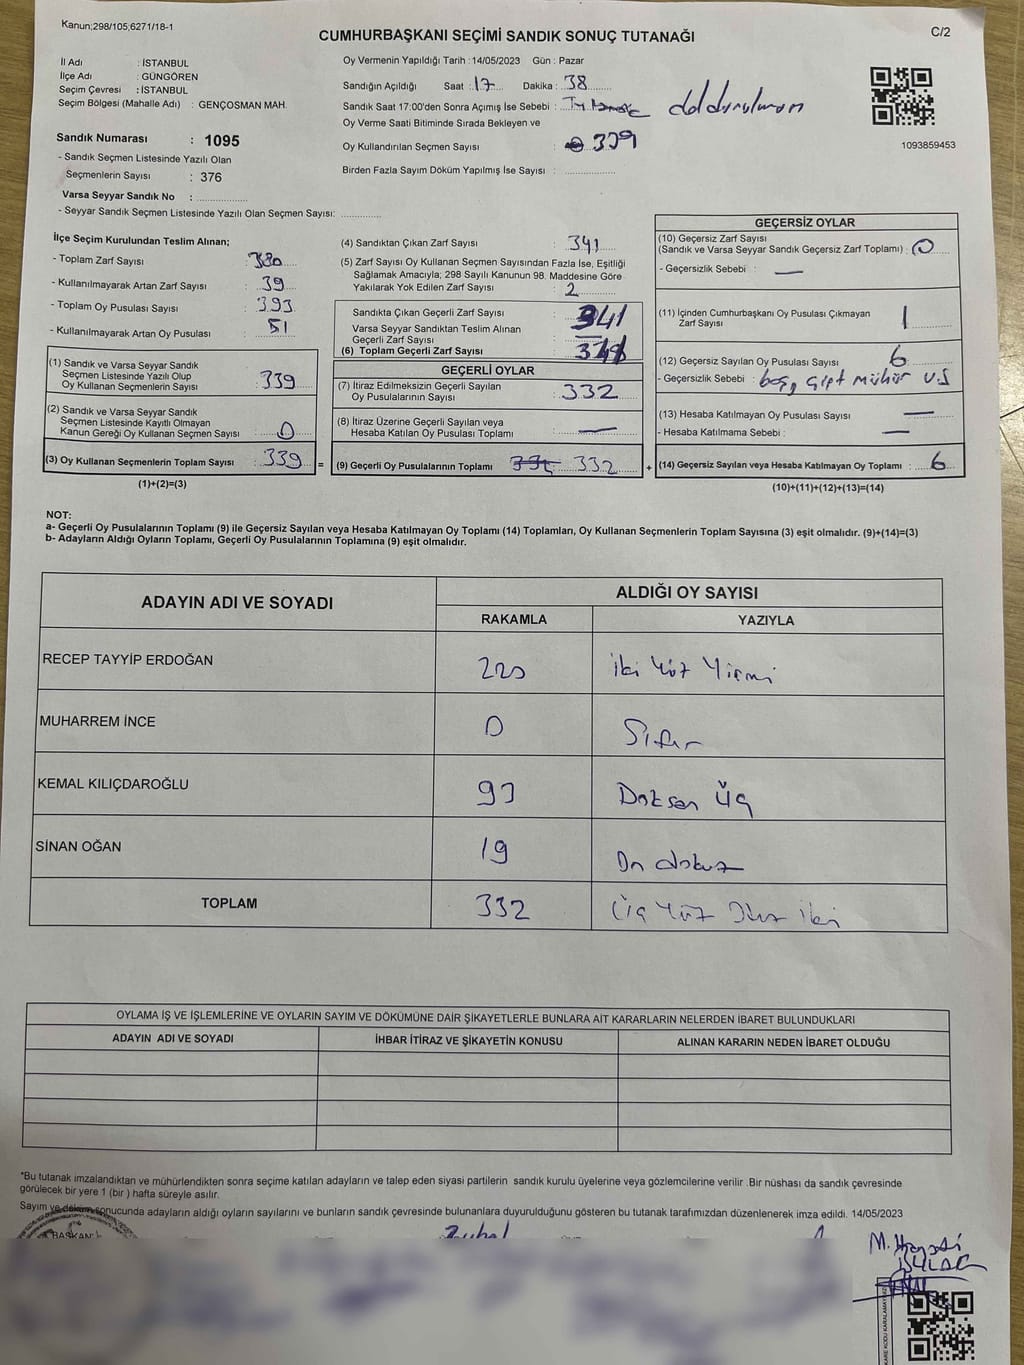 Kanun;298/105;6271/18-1
C/2
CUMHURBAŞKANI SEÇİMİ SANDIK SONUÇ TUTANAĞI
İl Adı : İSTANBUL
İlçe Adı : GÜNGÖREN
Seçim Çevresi : İSTANBUL
Seçim Bölgesi (Mahalle Adı) : GENÇOSMAN MAH.
Sandık Numarası : 1095
- Sandık Seçmen Listesinde Yazılı Olan
Seçmenlerin Sayısı : 376
Varsa Seyyar Sandık No :
- Seyyar Sandık Seçmen Listesinde Yazılı Olan Seçmen Sayısı:
Oy Vermenin Yapıldığı Tarih : 14/05/2023 Gün : Pazar
Sandığın Açıldığı Saat : 17 Dakika : 38
Sandık Saat 17:00'den Sonra Açımış İse Sebebi :
Oy Verme Saati Bitiminde Sırada Bekleyen ve
Oy Kullandırılan Seçmen Sayısı : 339
Birden Fazla Sayım Döküm Yapılmış İse Sayısı :
1093859453
İlçe Seçim Kurulundan Teslim Alınan;
- Toplam Zarf Sayısı : 380
- Kullanılmayarak Artan Zarf Sayısı : 39
- Toplam Oy Pusulası Sayısı : 393
- Kullanılmayarak Artan Oy Pusulası : 51
(1) Sandık ve Varsa Seyyar Sandık
Seçmen Listesinde Yazılı Olup
Oy Kullanan Seçmenlerin Sayısı : 339
(2) Sandık ve Varsa Seyyar Sandık
Seçmen Listesinde Kayıtlı Olmayan
Kanun Gereği Oy Kullanan Seçmen Sayısı : 0
(3) Oy Kullanan Seçmenlerin Toplam Sayısı : 339 =
(1)+(2)=(3)
(4) Sandıktan Çıkan Zarf Sayısı : 341
(5) Zarf Sayısı Oy Kullanan Seçmen Sayısından Fazla İse, Eşitliği
Sağlamak Amacıyla; 298 Sayılı Kanunun 98. Maddesine Göre
Yakılarak Yok Edilen Zarf Sayısı : 2
Sandıkta Çıkan Geçerli Zarf Sayısı : 341
Varsa Seyyar Sandıktan Teslim Alınan
Geçerli Zarf Sayısı :
(6) Toplam Geçerli Zarf Sayısı :
GEÇERLİ OYLAR
(7) İtiraz Edilmeksizin Geçerli Sayılan
Oy Pusulalarının Sayısı : 332
(8) İtiraz Üzerine Geçerli Sayılan veya
Hesaba Katılan Oy Pusulası Toplamı : —
(9) Geçerli Oy Pusulalarının Toplamı 332 +
GEÇERSİZ OYLAR
(10) Geçersiz Zarf Sayısı
(Sandık ve Varsa Seyyar Sandık Geçersiz Zarf Toplamı) : 0
- Geçersizlik Sebebi : —
(11) İçinden Cumhurbaşkanı Oy Pusulası Çıkmayan
Zarf Sayısı : 1
(12) Geçersiz Sayılan Oy Pusulası Sayısı : 6
- Geçersizlik Sebebi : boş, çift mühür v.s
(13) Hesaba Katılmayan Oy Pusulası Sayısı —
- Hesaba Katılmama Sebebi : —
(14) Geçersiz Sayılan veya Hesaba Katılmayan Oy Toplamı : 6
(10)+(11)+(12)+(13)=(14)
NOT:
a- Geçerli Oy Pusulalarının Toplamı (9) ile Geçersiz Sayılan veya Hesaba Katılmayan Oy Toplamı (14) Toplamları, Oy Kullanan Seçmenlerin Toplam Sayısına (3) eşit olmalıdır. (9)+(14)=(3)
b- Adayların Aldığı Oyların Toplamı, Geçerli Oy Pusulalarının Toplamına (9) eşit olmalıdır.
ADAYIN ADI VE SOYADI ALDIĞI OY SAYISI
RAKAMLA YAZIYLA
RECEP TAYYİP ERDOĞAN 220 iki Yüz Yirmi
MUHARREM İNCE 0 Sıfır
KEMAL KILIÇDAROĞLU 93 Doksan Üç
SİNAN OĞAN 19 On dokuz
TOPLAM 332 Üç Yüz Otuz iki
OYLAMA İŞ VE İŞLEMLERİNE VE OYLARIN SAYIM VE DÖKÜMÜNE DAİR ŞİKAYETLERLE BUNLARA AİT KARARLARIN NELERDEN İBARET BULUNDUKLARI
ADAYIN ADI VE SOYADI İHBAR İTİRAZ VE ŞİKAYETİN KONUSU ALINAN KARARIN NEDEN İBARET OLDUĞU
*Bu tutanak imzalandıktan ve mühürlendikten sonra seçime katılan adayların ve talep eden siyasi partilerin sandık kurulu üyelerine veya gözlemcilerine verilir .Bir nüshası da sandık çevresinde
görülecek bir yere 1 (bir ) hafta süreyle asılır.
Sayım ve döküm sonucunda adayların aldığı oyların sayılarını ve bunların sandık çevresinde bulunanlara duyurulduğunu gösteren bu tutanak tarafımızdan düzenlenerek imza edildi. 14/05/2023
BAŞKAN